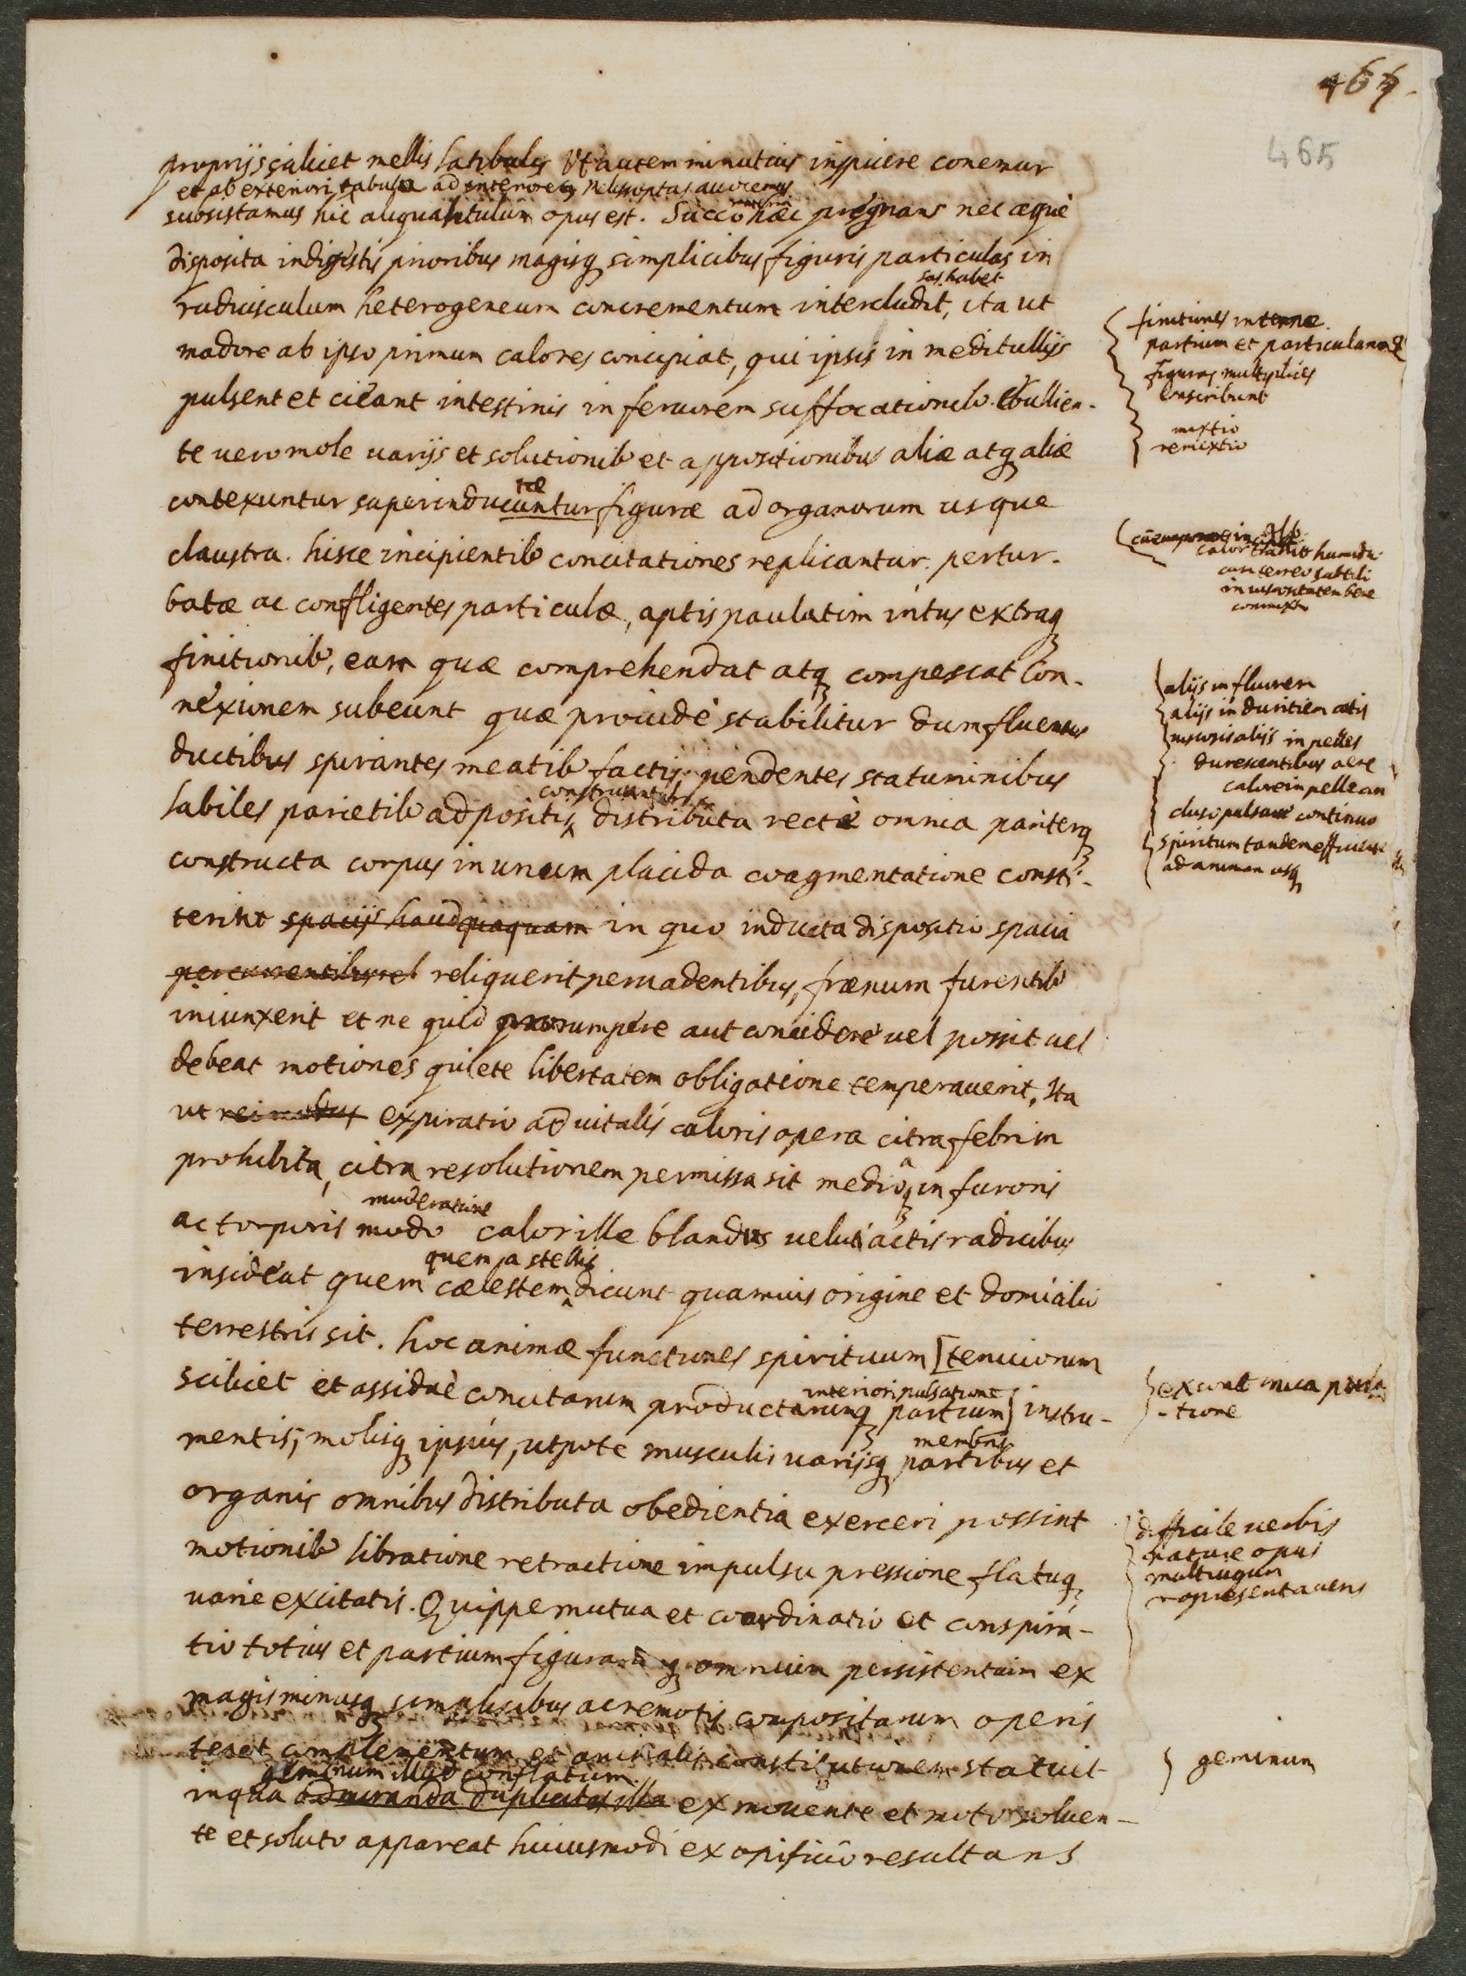 465
proprijs scilicet mellis latibulis Ut autem minutius inspicere conemur
et ab exteriori tabula ad interiores
subsistamus hic aliquantulum opus est. Succo hæc prægnans nec æquè
disposita indigestis prioribus magisq simplicibus figuris particulas in
radiusculum heterogeneum concrementum intercludit, ita ut
sas habet
madore ab ipso primum calores concipiat, qui ipsis in meditullijs
pulsent et cieant intestinis in feruorem suffocationib. Ebullien-
te uero mole uarijs et solutionib et appositionibus aliæ atq aliæ
contexuntur superinducuntur figuræ ad organorum usque
tæ
claustra. hisce incipientib concitationes replicantur. pertur-
batæ ac confligentes particulæ, aptis paulatim intus extraq
finitionib, eam quæ comprehendat atq compescat con-
nexionem subeunt quæ prouide stabilitur dum fluentes
ductibus spirantes meatib factis pendentes statuminibus
labiles parietib adpositis distributa rectè omnia pariterq
construentibus
constructa corpus in unum placida coagmentatione consti-
terint spacijs haudquaquam in quo inducta dispositio spacia
percurrentibus reliquerit peruadentibus, frænum furentib
iniunxerit et ne quid prorumpere aut concidere uel possit uel
debeat motiones quiete libertatem obligatione temperauerit, Ita
ut expiratio ad uitalis caloris opera citra febrim
prohibita, citra resolutionem permissa sit medioq in furoris
ac torporis modo calor ille blandus ueluti actis radicibus
moderatione
insideat quem cælestem dicunt quamuis origine et domicilio
quem a stellis
terrestris sit. hoc animæ functiones spirituum [tenuiorum
scilicet et assiduè concitarum productarumq partium] instru-
interiori pulsatione
mentis, molisq ipsius, utpote musculis uarijsq partibus et
membris
organis omnibus distributa obedientia exerceri possint
motionib libratione retractione impulsu pressione flatuq
uarie excitatis. Quippe mutua et coordinatio et conspira-
tio totius et partium figurarū q omnium persistentium ex
magis minusq simplicibus ac remotis compositarum operis
teret complementum et animalis constitutionem statuit
geminum illud conflatum
in qua admiranda duplicitas illa ex mouente et moto soluen-
te et soluto appareat huiusmodi ex opificio resultans
finitiones internæ
partium et particularum
figuras multiplices
conscribunt
mixtio
remixtio
calor humidu
cum terreo subtili
in uiscositatem bene
commixto
alijs in fluorem
alijs in duritiem
alijs in pelles
durescentibus aere
calore in pellem
cluso pulsare continuo
spiritum tandem efficiens
ad animam usq
ex continua
-tione
difficile uerbis
naturæ opus
multiugum
representaueris
geminum